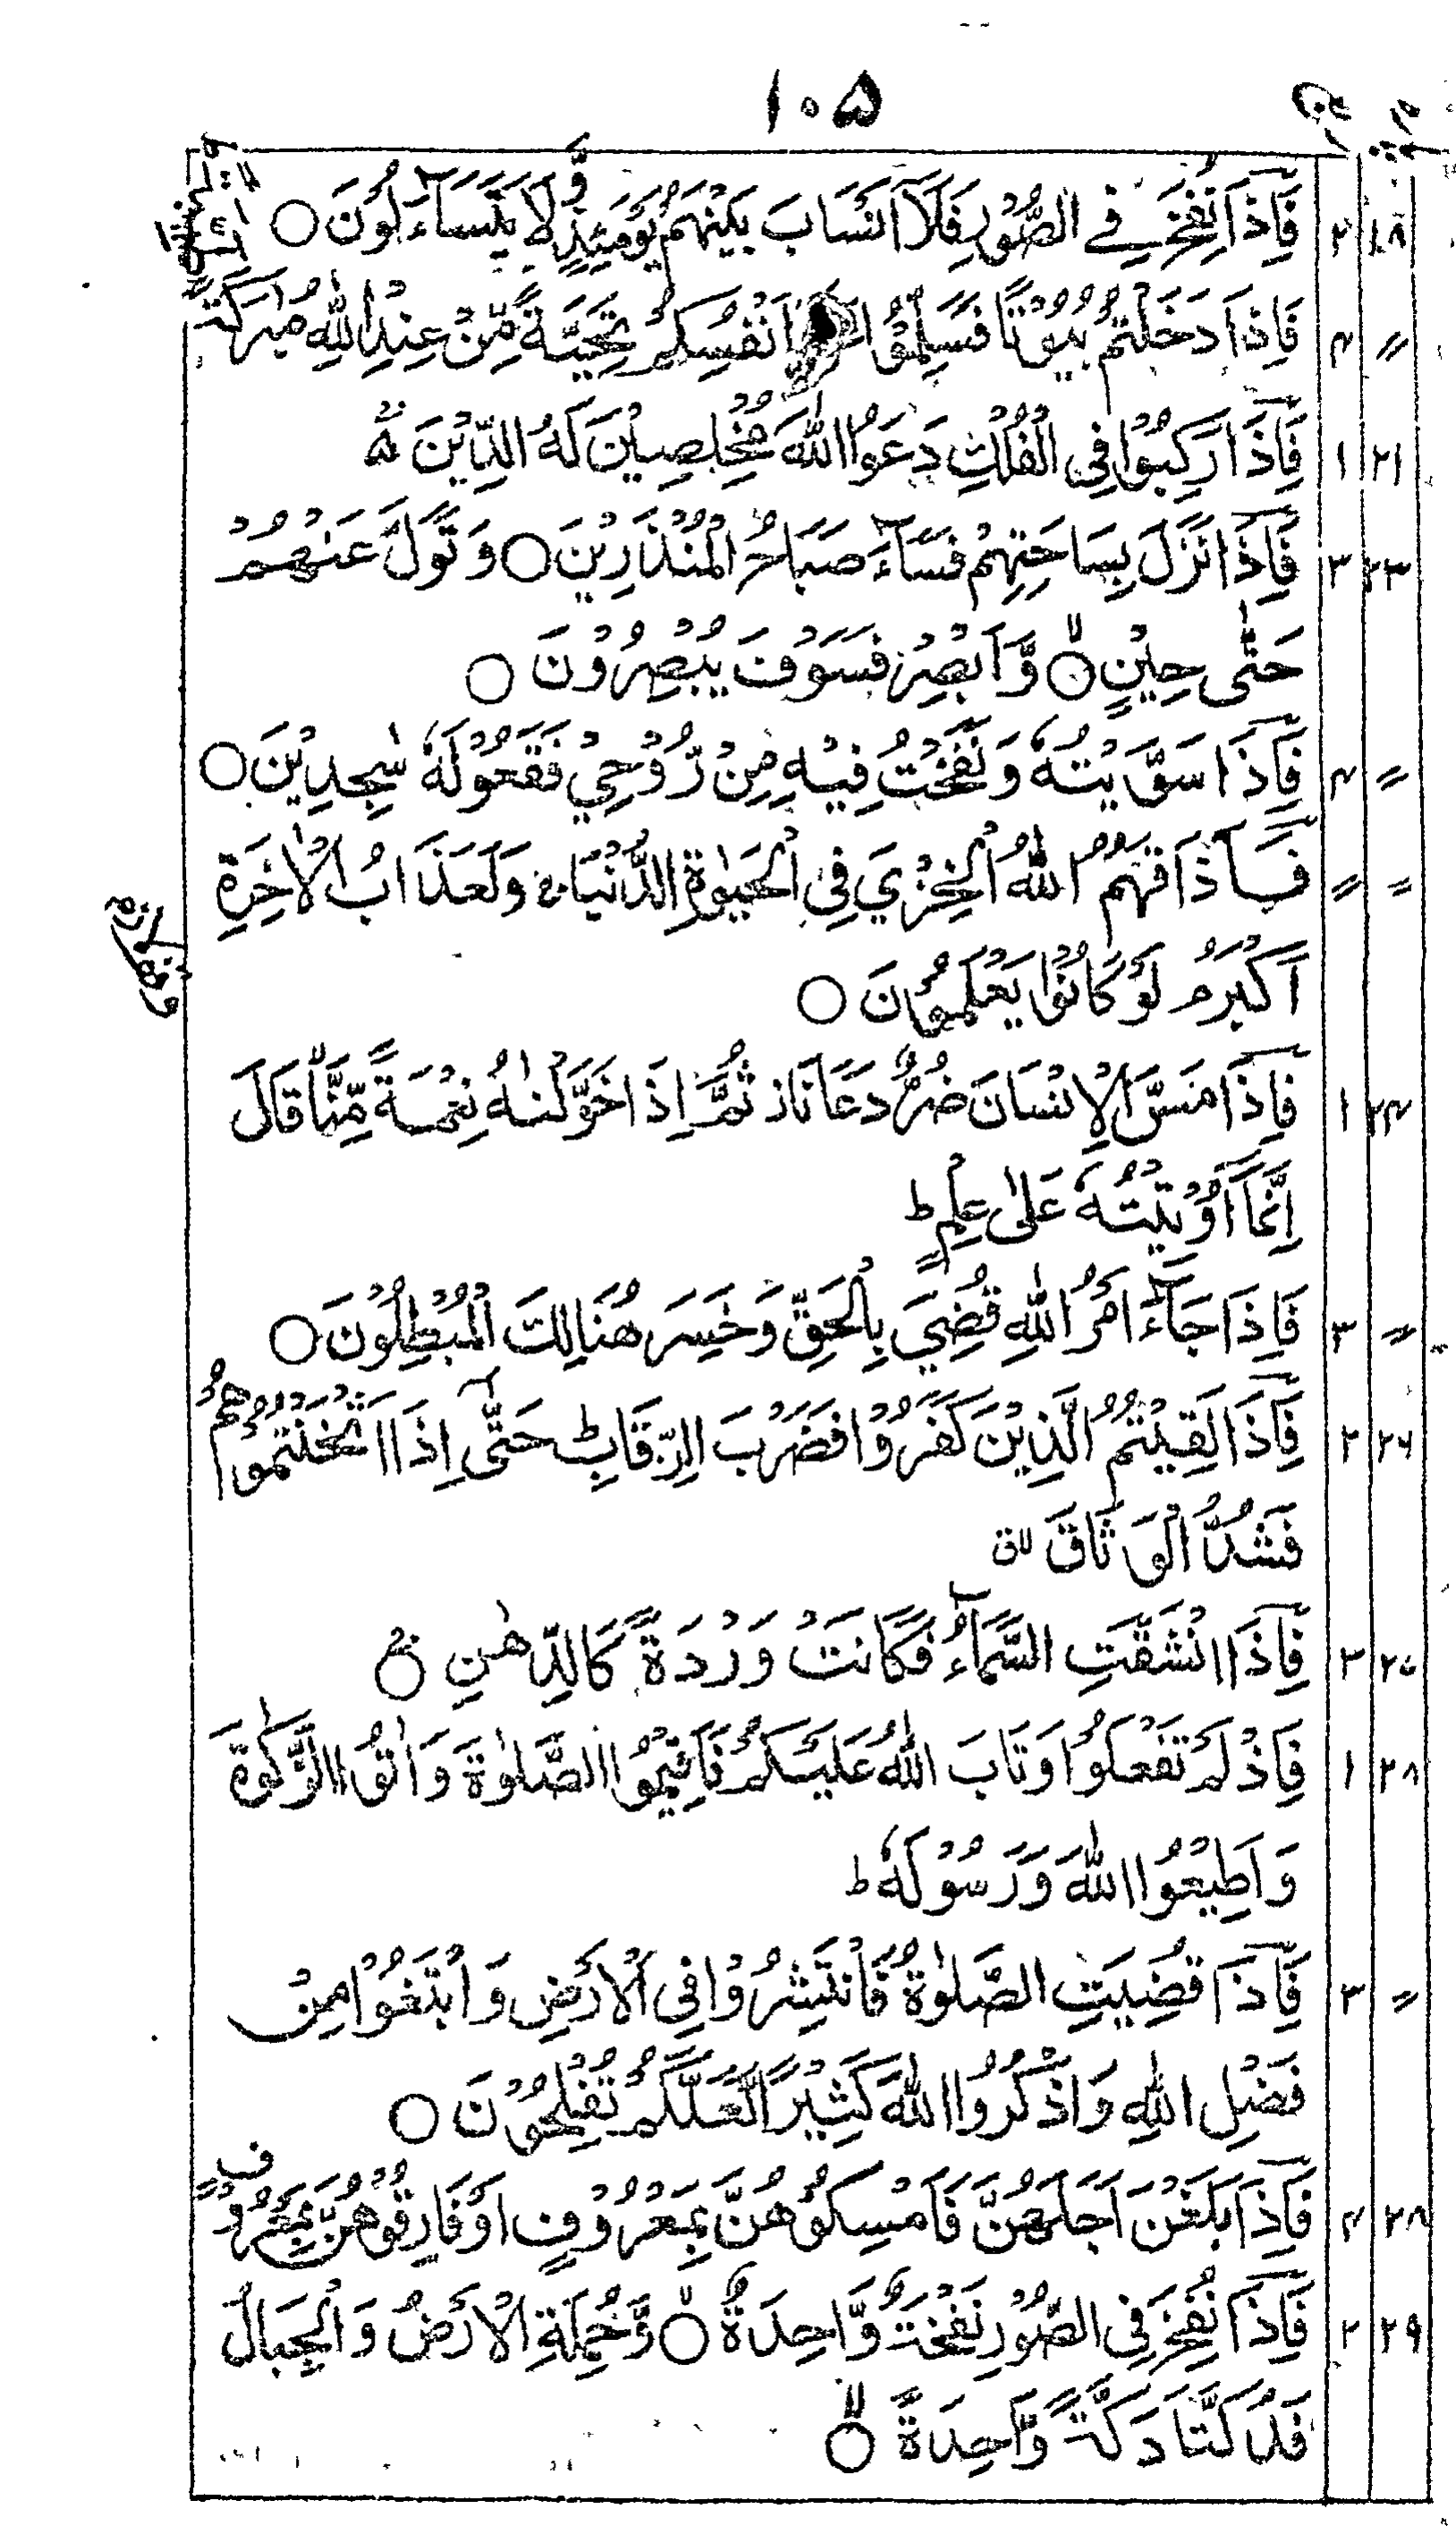 ۱۰۵
۱۸ ۲ فَاِذَا نُفِخَ فِی الصُّوْرِ فَلَآ اَنْسَابَ بَیْنَهُمْ یَوْمَئِذٍ وَّلَا یَتَسَآءَلُوْنَ ○
〃 ۴ فَاِذَا دَخَلْتُمْ بُیُوْتًا فَسَلِّمُوْا اَنْفُسِكُمْ تَحِیَّةً مِّنْ عِنْدِ اللّٰهِ مُبٰرَكَةً
۲۱ ۱ فَاِذَا رَكِبُوْا فِی الْفُلْكِ دَعَوُا اللّٰهَ مُخْلِصِیْنَ لَهُ الدِّیْنَ
۲۳ ۳ فَاِذَا نَزَلَ بِسَاحَتِهِمْ فَسَآءَ صَبَاحُ الْمُنْذَرِیْنَ ○ وَ تَوَلَّ عَنْهُمْ
حَتّٰی حِیْنٍ ○ وَّاَبْصِرْ فَسَوْفَ یُبْصِرُوْنَ ○
〃 ۴ فَاِذَا سَوَّیْتُهٗ وَ نَفَخْتُ فِیْهِ مِنْ رُّوْحِیْ فَقَعُوْا لَهٗ سٰجِدِیْنَ ○
〃 〃 فَاَذَاقَهُمُ اللّٰهُ الْخِزْیَ فِی الْحَیٰوةِ الدُّنْیَا ج وَلَعَذَابُ الْاٰخِرَةِ
اَكْبَرُ م لَوْ كَانُوْا یَعْلَمُوْنَ ○
۲۴ ۱ فَاِذَا مَسَّ الْاِنْسَانَ ضُرٌّ دَعَانَا ز ثُمَّ اِذَا خَوَّلْنٰهُ نِعْمَةً مِّنَّا قَالَ
اِنَّمَآ اُوْتِیْتُهٗ عَلٰی عِلْمٍ ط
〃 ۳ فَاِذَا جَآءَ اَمْرُ اللّٰهِ قُضِیَ بِالْحَقِّ وَ خَسِرَ هُنَالِكَ الْمُبْطِلُوْنَ ○
۲۶ ۲ فَاِذَا لَقِیْتُمُ الَّذِیْنَ كَفَرُوْا فَضَرْبَ الرِّقَابِ ط حَتّٰۤی اِذَا اَثْخَنْتُمُوْهُمْ
فَشُدُّوا الْوَثَاقَ لاق
۲۷ ۳ فَاِذَا انْشَقَّتِ السَّمَآءُ فَكَانَتْ وَرْدَةً كَالدِّهٰنِ ○
۲۸ ۱ فَاِذْ لَمْ تَفْعَلُوْا وَ تَابَ اللّٰهُ عَلَیْكُمْ فَاَقِیْمُوا الصَّلٰوةَ وَ اٰتُوا الزَّكٰوةَ
وَ اَطِیْعُوا اللّٰهَ وَ رَسُوْلَهٗ ط
〃 ۳ فَاِذَا قُضِیَتِ الصَّلٰوةُ فَانْتَشِرُوْا فِی الْاَرْضِ وَ ابْتَغُوْا مِنْ
فَضْلِ اللّٰهِ وَ اذْكُرُوا اللّٰهَ كَثِیْرًا لَّعَلَّكُمْ تُفْلِحُوْنَ ○
۲۸ ۴ فَاِذَا بَلَغْنَ اَجَلَهُنَّ فَاَمْسِكُوْهُنَّ بِمَعْرُوْفٍ اَوْ فَارِقُوْهُنَّ بِمَعْرُوْفٍ
۲۹ ۲ فَاِذَا نُفِخَ فِی الصُّوْرِ نَفْخَةٌ وَّاحِدَةٌ ○ وَّحُمِلَةِ الْاَرْضُ وَ الْجِبَالُ
فَدُكَّتَا دَكَّةً وَّاحِدَةً ○